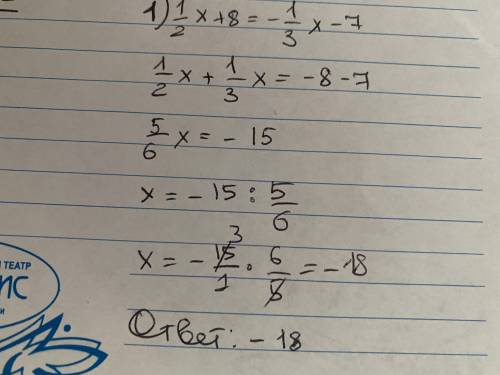 1) 1/2 x + 8 = - 1/3 x - 7
1/2 x + 1/3 x = - 8 - 7
5/6 x = - 15
x = - 15 : 5/6
3
x = - 15/1 · 6/5 = - 18
Ответ: - 18
ТЕАТР